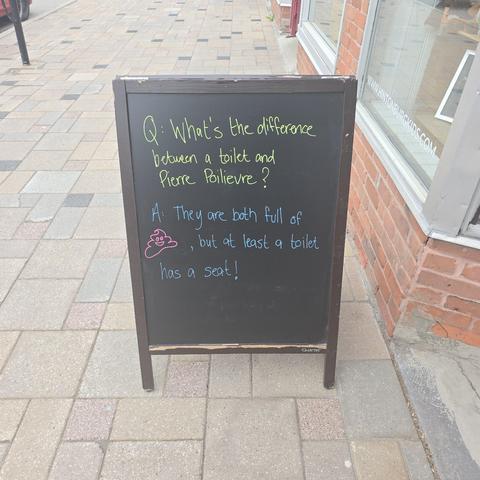 Q: What's the difference
between a toilet and
Pierre Poilievre?
A: They are both full of
💩, but at least a toilet
has a seat!